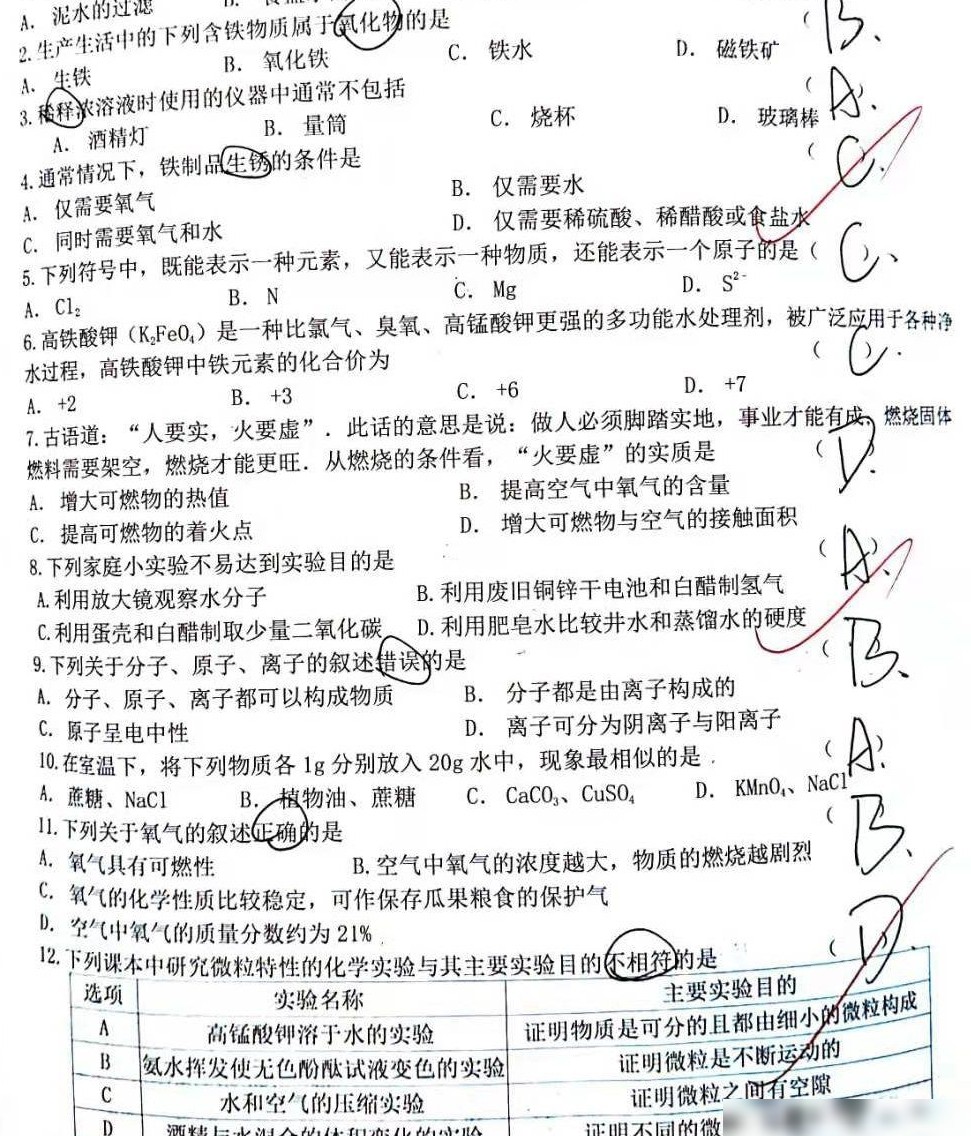 A. 泥水的过滤
2.生产生活中的下列含铁物质属于氧化物的是 ( B.
A. 生铁 B. 氧化铁 C. 铁水 D. 磁铁矿
3.稀释浓溶液时使用的仪器中通常不包括 ( A.
A. 酒精灯 B. 量筒 C. 烧杯 D. 玻璃棒
4.通常情况下，铁制品生锈的条件是 ( C.
A. 仅需要氧气 B. 仅需要水
C. 同时需要氧气和水 D. 仅需要稀硫酸、稀醋酸或食盐水
5.下列符号中，既能表示一种元素，又能表示一种物质，还能表示一个原子的是 ( C.
A. Cl₂ B. N C. Mg D. S²⁻
6.高铁酸钾（K₂FeO₄）是一种比氯气、臭氧、高锰酸钾更强的多功能水处理剂，被广泛应用于各种净
水过程，高铁酸钾中铁元素的化合价为 ( C.
A. +2 B. +3 C. +6 D. +7
7.古语道：“人要实，火要虚”．此话的意思是说：做人必须脚踏实地，事业才能有成，燃烧固体
燃料需要架空，燃烧才能更旺．从燃烧的条件看，“火要虚”的实质是 ( D.
A. 增大可燃物的热值 B. 提高空气中氧气的含量
C. 提高可燃物的着火点 D. 增大可燃物与空气的接触面积
8.下列家庭小实验不易达到实验目的是 ( A.
A.利用放大镜观察水分子 B.利用废旧铜锌干电池和白醋制氢气
C.利用蛋壳和白醋制取少量二氧化碳 D.利用肥皂水比较井水和蒸馏水的硬度
9.下列关于分子、原子、离子的叙述错误的是 ( B.
A. 分子、原子、离子都可以构成物质 B. 分子都是由离子构成的
C. 原子呈电中性 D. 离子可分为阴离子与阳离子
10.在室温下，将下列物质各 1g 分别放入 20g 水中，现象最相似的是 ( A. )
A. 蔗糖、NaCl B. 植物油、蔗糖 C. CaCO₃、CuSO₄ D. KMnO₄、NaCl
11.下列关于氧气的叙述正确的是 ( B.
A. 氧气具有可燃性 B.空气中氧气的浓度越大，物质的燃烧越剧烈
C. 氧气的化学性质比较稳定，可作保存瓜果粮食的保护气
D. 空气中氧气的质量分数约为 21%
12.下列课本中研究微粒特性的化学实验与其主要实验目的不相符的是 ( D.
选项 实验名称 主要实验目的
A 高锰酸钾溶于水的实验 证明物质是可分的且都由细小的微粒构成
B 氨水挥发使无色酚酞试液变色的实验 证明微粒是不断运动的
C 水和空气的压缩实验 证明微粒之间有空隙
D 酒精与水混合的体积变化的实验 证明不同的微